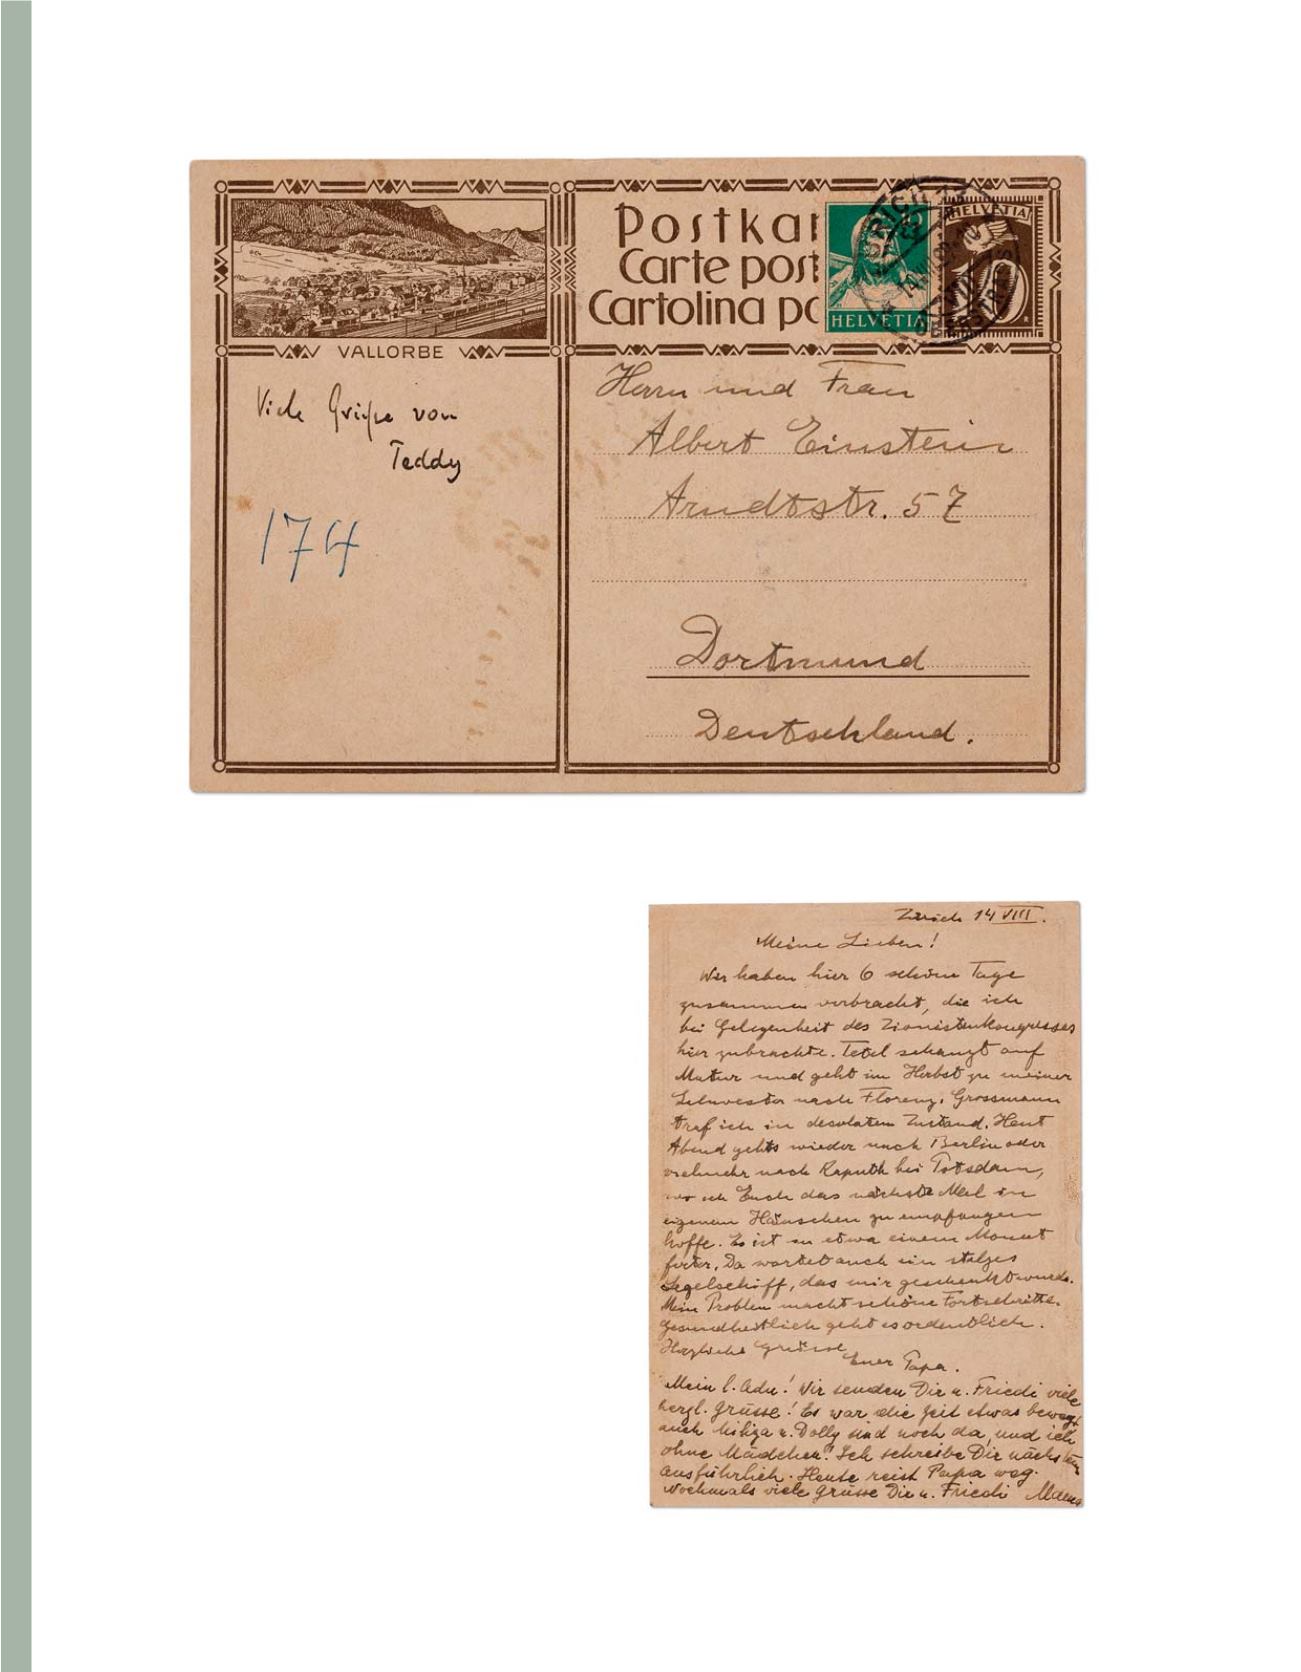 Postkar
Carte post
Cartolina po
HELVETIA
HELVETIA
VALLORBE
Viele Grüße von
Teddy
174
Herrn und Frau
Albert Einstein
Arndtstr. 57
Dortmund
Deutschland.
Zürich 14 VIII.
Meine Lieben!
Wir haben hier 6 schöne Tage
zusammen verbracht, die ich
bei Gelegenheit des Zionistenkongresses
hier zubrachte. Tetel schanzt auf
Matur und geht im Herbst zu meiner
Schwester nach Florenz. Grossmann
traf ich in desolatem Zustand. Heut
Abend gehts wieder nach Berlin oder
vielmehr nach Kaputh bei Potsdam,
wo ich Euch das nächste Mal im
eigenen Häuschen zu empfangen
hoffe. Es ist in etwa einem Monat
fertig. Da wartet auch ein stolzes
Segelschiff, das mir geschenkt wurde.
Mein Problem macht schöne Fortschritte.
Gesundheitlich geht es ordentlich.
Herzliche Grüsse
Euer Papa.
Mein l. Adu! Wir senden Dir u. Friedi viele
herzl. Grüsse! Es war die Zeit etwas bewegt
auch Miliza u. Dolly sind noch da, und ich
ohne Mädchen! Ich schreibe Dir nächstens
ausführlich. Heute reist Papa weg.
Nochmals viele Grüsse Dir u. Friedi Mama